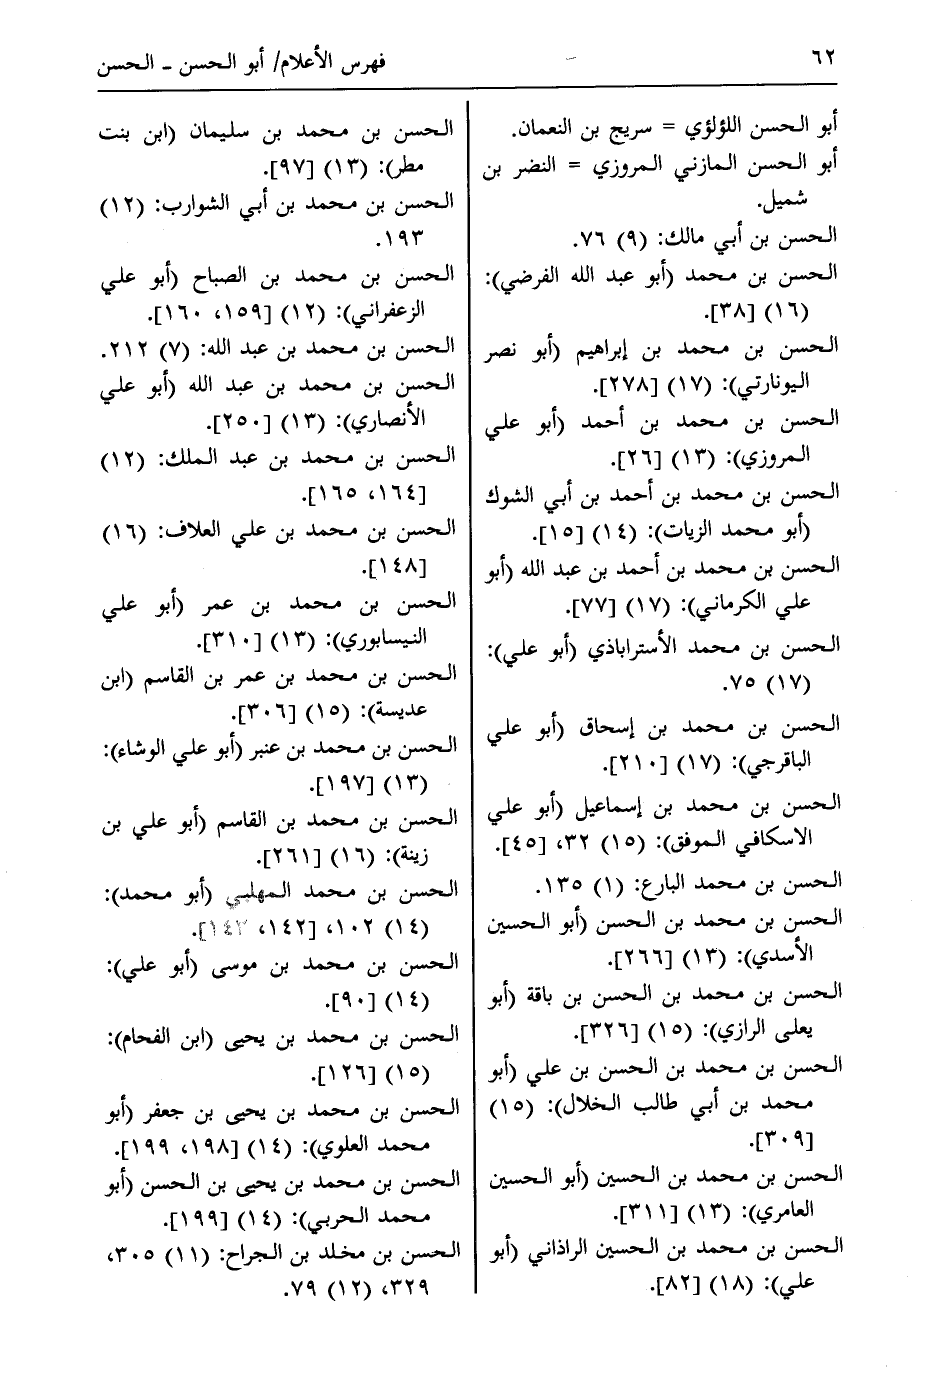 ٦٢
فهرس الأعلام/ أبو الحسن ـ الحسن
أبو الحسن اللؤلؤي = سريج بن النعمان.
أبو الحسن المازني المروزي = النضر بن
شميل.
الحسن بن أبي مالك: (٩) ٧٦.
الحسن بن محمد (أبو عبد الله الفرضي):
(١٦) [٣٨].
الحسن بن محمد بن إبراهيم (أبو نصر
اليونارتي): (١٧) [٢٧٨].
الحسن بن محمد بن أحمد (أبو علي
المروزي): (١٣) [٢٦].
الحسن بن محمد بن أحمد بن أبي الشوك
(أبو محمد الزيات): (١٤) [١٥].
الحسن بن محمد بن أحمد بن عبد الله (أبو
علي الكرماني): (١٧) [٧٧].
الحسن بن محمد الأستراباذي (أبو علي):
(١٧) ٧٥.
الحسن بن محمد بن إسحاق (أبو علي
الباقرجي): (١٧) [٢١٠].
الحسن بن محمد بن إسماعيل (أبو علي
الاسكافي الموفق): (١٥) ٣٢، [٤٥].
الحسن بن محمد البارع: (١) ١٣٥.
الحسن بن محمد بن الحسن (أبو الحسين
الأسدي): (١٣) [٢٦٦].
الحسن بن محمد بن الحسن بن باقة (أبو
يعلى الرازي): (١٥) [٣٢٦].
الحسن بن محمد بن الحسن بن علي (أبو
محمد بن أبي طالب الخلال): (١٥)
[٣٠٩].
الحسن بن محمد بن الحسين (أبو الحسين
العامري): (١٣) [٣١١].
الحسن بن محمد بن الحسين الراذاني (أبو
علي): (١٨) [٨٢].
الحسن بن محمد بن سليمان (ابن بنت
مطر): (١٣) [٩٧].
الحسن بن محمد بن أبي الشوارب: (١٢)
١٩٣.
الحسن بن محمد بن الصباح (أبو علي
الزعفراني): (١٢) [١٥٩، ١٦٠].
الحسن بن محمد بن عبد الله: (٧) ٢١٢.
الحسن بن محمد بن عبد الله (أبو علي
الأنصاري): (١٣) [٢٥٠].
الحسن بن محمد بن عبد الملك: (١٢)
[١٦٤، ١٦٥].
الحسن بن محمد بن علي العلاف: (١٦)
[١٤٨].
الحسن بن محمد بن عمر (أبو علي
النيسابوري): (١٣) [٣١٠].
الحسن بن محمد بن عمر بن القاسم (ابن
عديسة): (١٥) [٣٠٦].
الحسن بن محمد بن عنبر (أبو علي الوشاء):
(١٣) [١٩٧].
الحسن بن محمد بن القاسم (أبو علي بن
زينة): (١٦) [٢٦١].
الحسن بن محمد المهلبي (أبو محمد):
(١٤) ١٠٢، [١٤٢، ١٤٣].
الحسن بن محمد بن موسى (أبو علي):
(١٤) [٩٠].
الحسن بن محمد بن يحيى (ابن الفحام):
(١٥) [١٢٦].
الحسن بن محمد بن يحيى بن جعفر (أبو
محمد العلوي): (١٤) [١٩٨، ١٩٩].
الحسن بن محمد بن يحيى بن الحسن (أبو
محمد الحربي): (١٤) [١٩٩].
الحسن بن مخلد بن الجراح: (١١) ٣٠٥،
٣٢٩، (١٢) ٧٩.